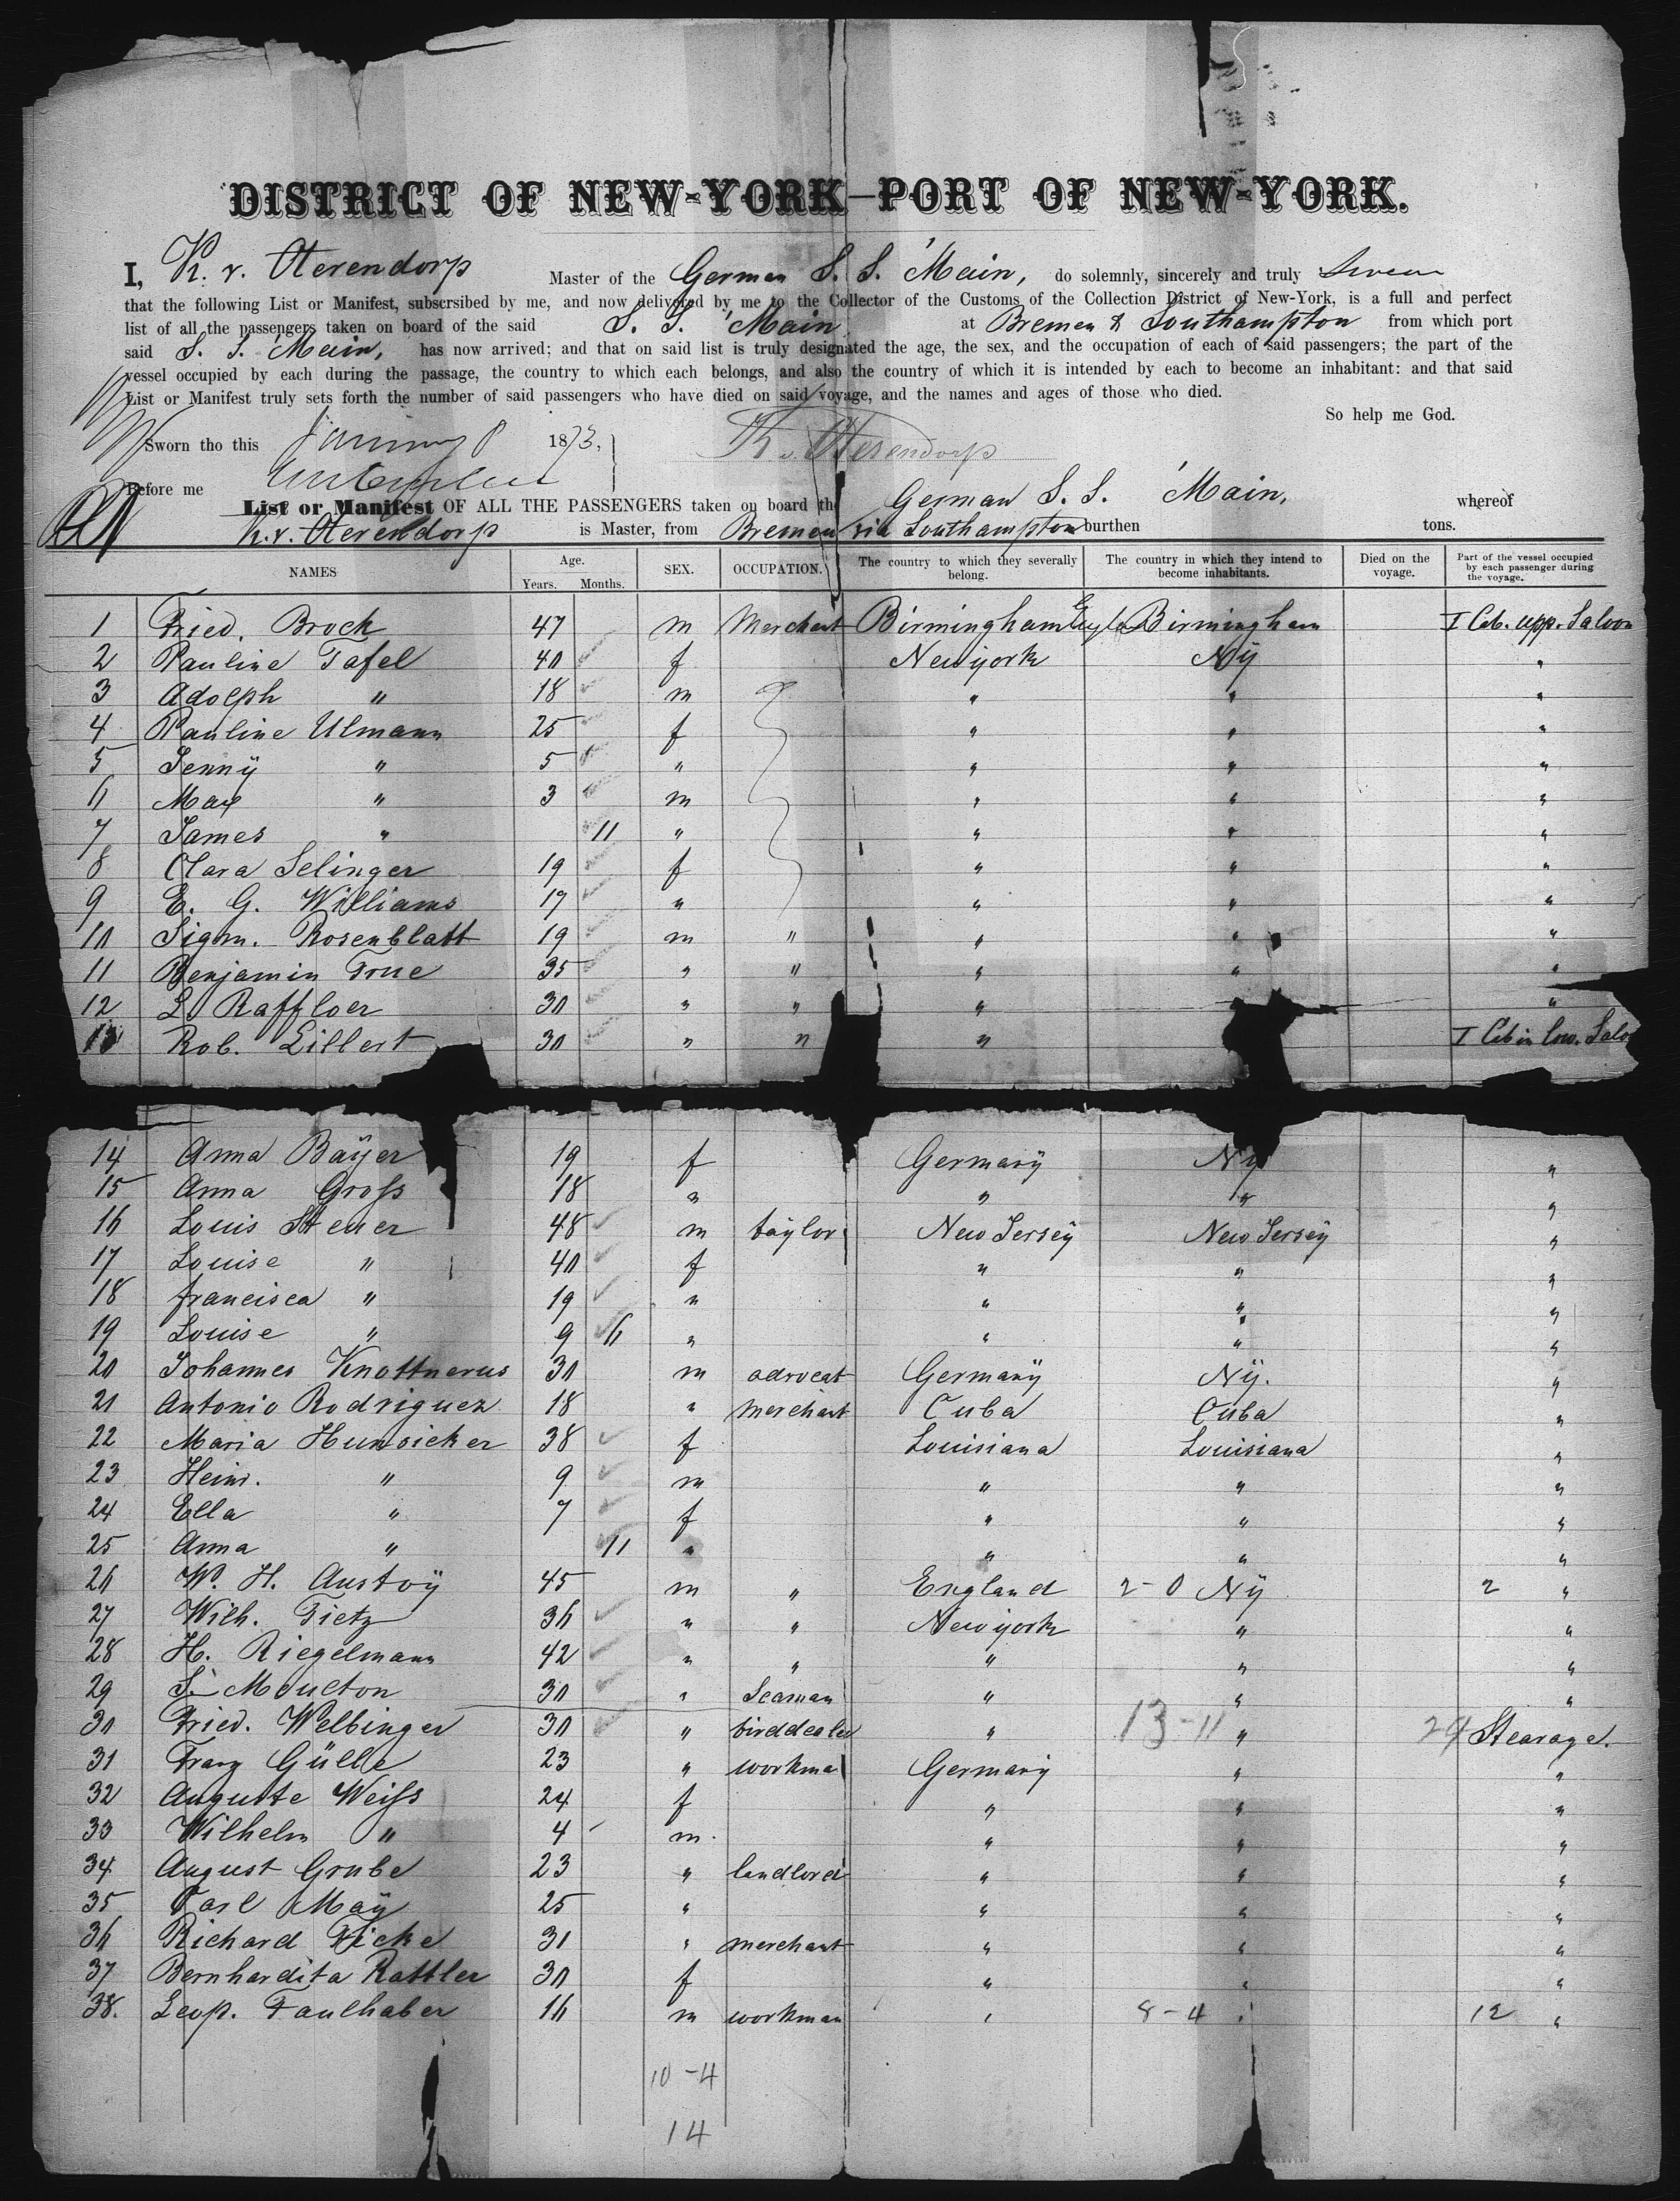 DISTRICT OF NEW-YORK—PORT OF NEW-YORK.
I, K. v. Oterendorp Master of the German S. S. 'Main, do solemnly, sincerely and truly swear
that the following List or Manifest, subscrsibed by me, and now delivered by me to the Collector of the Customs of the Collection District of New-York, is a full and perfect
list of all the passengers taken on board of the said S. S. 'Main at Bremen & Southampton from which port
said S. S. 'Main, has now arrived; and that on said list is truly designated the age, the sex, and the occupation of each of said passengers; the part of the
vessel occupied by each during the passage, the country to which each belongs, and also the country of which it is intended by each to become an inhabitant: and that said
List or Manifest truly sets forth the number of said passengers who have died on said voyage, and the names and ages of those who died.
So help me God.
Sworn tho this January 8 1873, K v. Oterendorp
Before me
List or Manifest OF ALL THE PASSENGERS taken on board the German S. S. 'Main, whereof
K. v. Oterendorp is Master, from Bremen via Southampton burthen tons.
NAMES Age. Years. Months. SEX. OCCUPATION. The country to which they severally belong. The country in which they intend to become inhabitants. Died on the voyage. Part of the vessel occupied by each passenger during the voyage.
1 Fried. Broch 47 m Merchant Birmingham Engl. Birmingham I Cab. upp. Saloon
2 Pauline Tafel 40 f Newyork Nÿ "
3 Adolph " 18 m " " "
4 Pauline Ulmann 25 f " " "
5 Jennÿ " 5 " " " "
6 Max " 3 m " " "
7 James " 11 " " " "
8 Clara Selinger 19 f " " "
9 E. G. Williams 17 " " " "
10 Sigm. Rosenblatt 19 m " " " "
11 Benjamin True 35 " " " " "
12 L. Raffloer 30 " " " "
13 Rob. Lillert 30 " " " I Cabin low. Saloo
14 Anna Baÿer 19 f Germanÿ Nÿ "
15 Anna Gross 18 " " " "
16 Louis Steuer 48 m taylor New Jerseÿ New Jerseÿ "
17 Louise " 40 f " " "
18 francisca " 19 " " " "
19 Louise " 9 6 " " " "
20 Johannes Knottnerus 30 m advocat Germanÿ Nÿ. "
21 Antonio Rodriguez 18 " merchant Cuba Cuba "
22 Maria Hunsicker 38 f Louisiana Louisiana "
23 Heinr. " 9 m " " "
24 Ella " 7 f " " "
25 Anna " 11 " " " "
26 W. H. Austoÿ 45 m " England 2-0 Nÿ 2 "
27 Wilh. Tietz 36 " " Newyork " "
28 H. Riegelmann 42 " " " " "
29 S. Moulton 30 " Seaman " " "
30 Fried. Welbinger 30 " birddealer " 13-11 " 24 Stearage.
31 Franz Gülle 23 " workma Germanÿ " "
32 Auguste Weiss 24 f " " "
33 Wilhelm " 4 m. " " "
34 August Grube 23 " landlord " " "
35 Carl Maÿ 25 " " " "
36 Richard Ficke 31 " merchant " " "
37 Bernhardita Rattler 30 f " " "
38. Leop. Faulhaber 16 m workman " 8-4 " 12 "
10-4
14